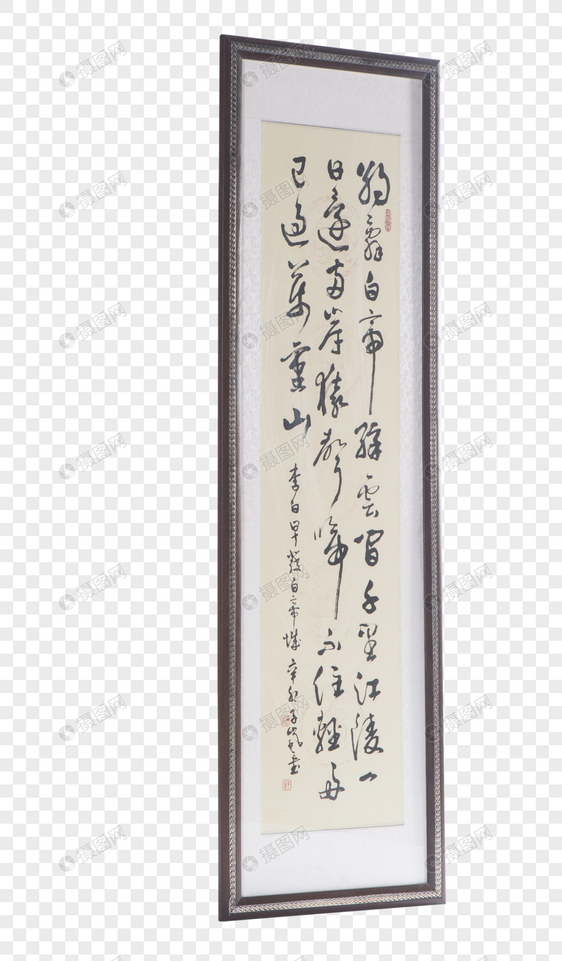 朝辭白帝綵雲間千里江陵一
日還兩岸猿聲啼不住輕舟
已過萬重山
李白早發白帝城 辛卯 書
摄图网